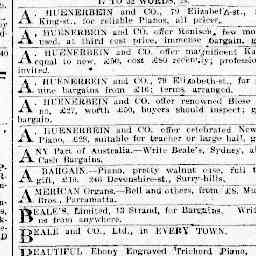 A. HUENERBEIN and CO., 79 Elizabeth-st.,
King-st., for reliable Pianos, all prices.
A. HUENERBEIN and CO. offer Ronisch, few mo
used, at third cost price, immense bargain,
A. HUENERBEIN and CO. offer magnificent Ka
equal to new, £50, cost £80 recently; profession
invited.
A. HUENERBEIN and CO., 79 Elizabeth-st., for
nine bargains from £16; terms arranged.
A. HUENERBEIN and CO. offer renowned Biese
no, £27, worth £50, buyers should inspect; g
bargain.
A. HUENERBEIN and CO. offer celebrated New
Piano, £28, suitable for teacher or large Hall,
ANY Part of Australia.—Write Beale's, Sydney,
Cash Bargains.
A BARGAIN.—Piano, pretty walnut case, full t
gift, £10. 246 Devonshire-st., Surry-hills.
AMERICAN Organs.—Bell and others, from £8. Mu
Bros., Parramatta.
BEALE'S, Limited, 13 Strand, for Bargains. Writ
us from anywhere.
BEALE and CO., Ltd., in EVERY TOWN.
BEAUTIFUL Ebony Engraved Trichord Piano,